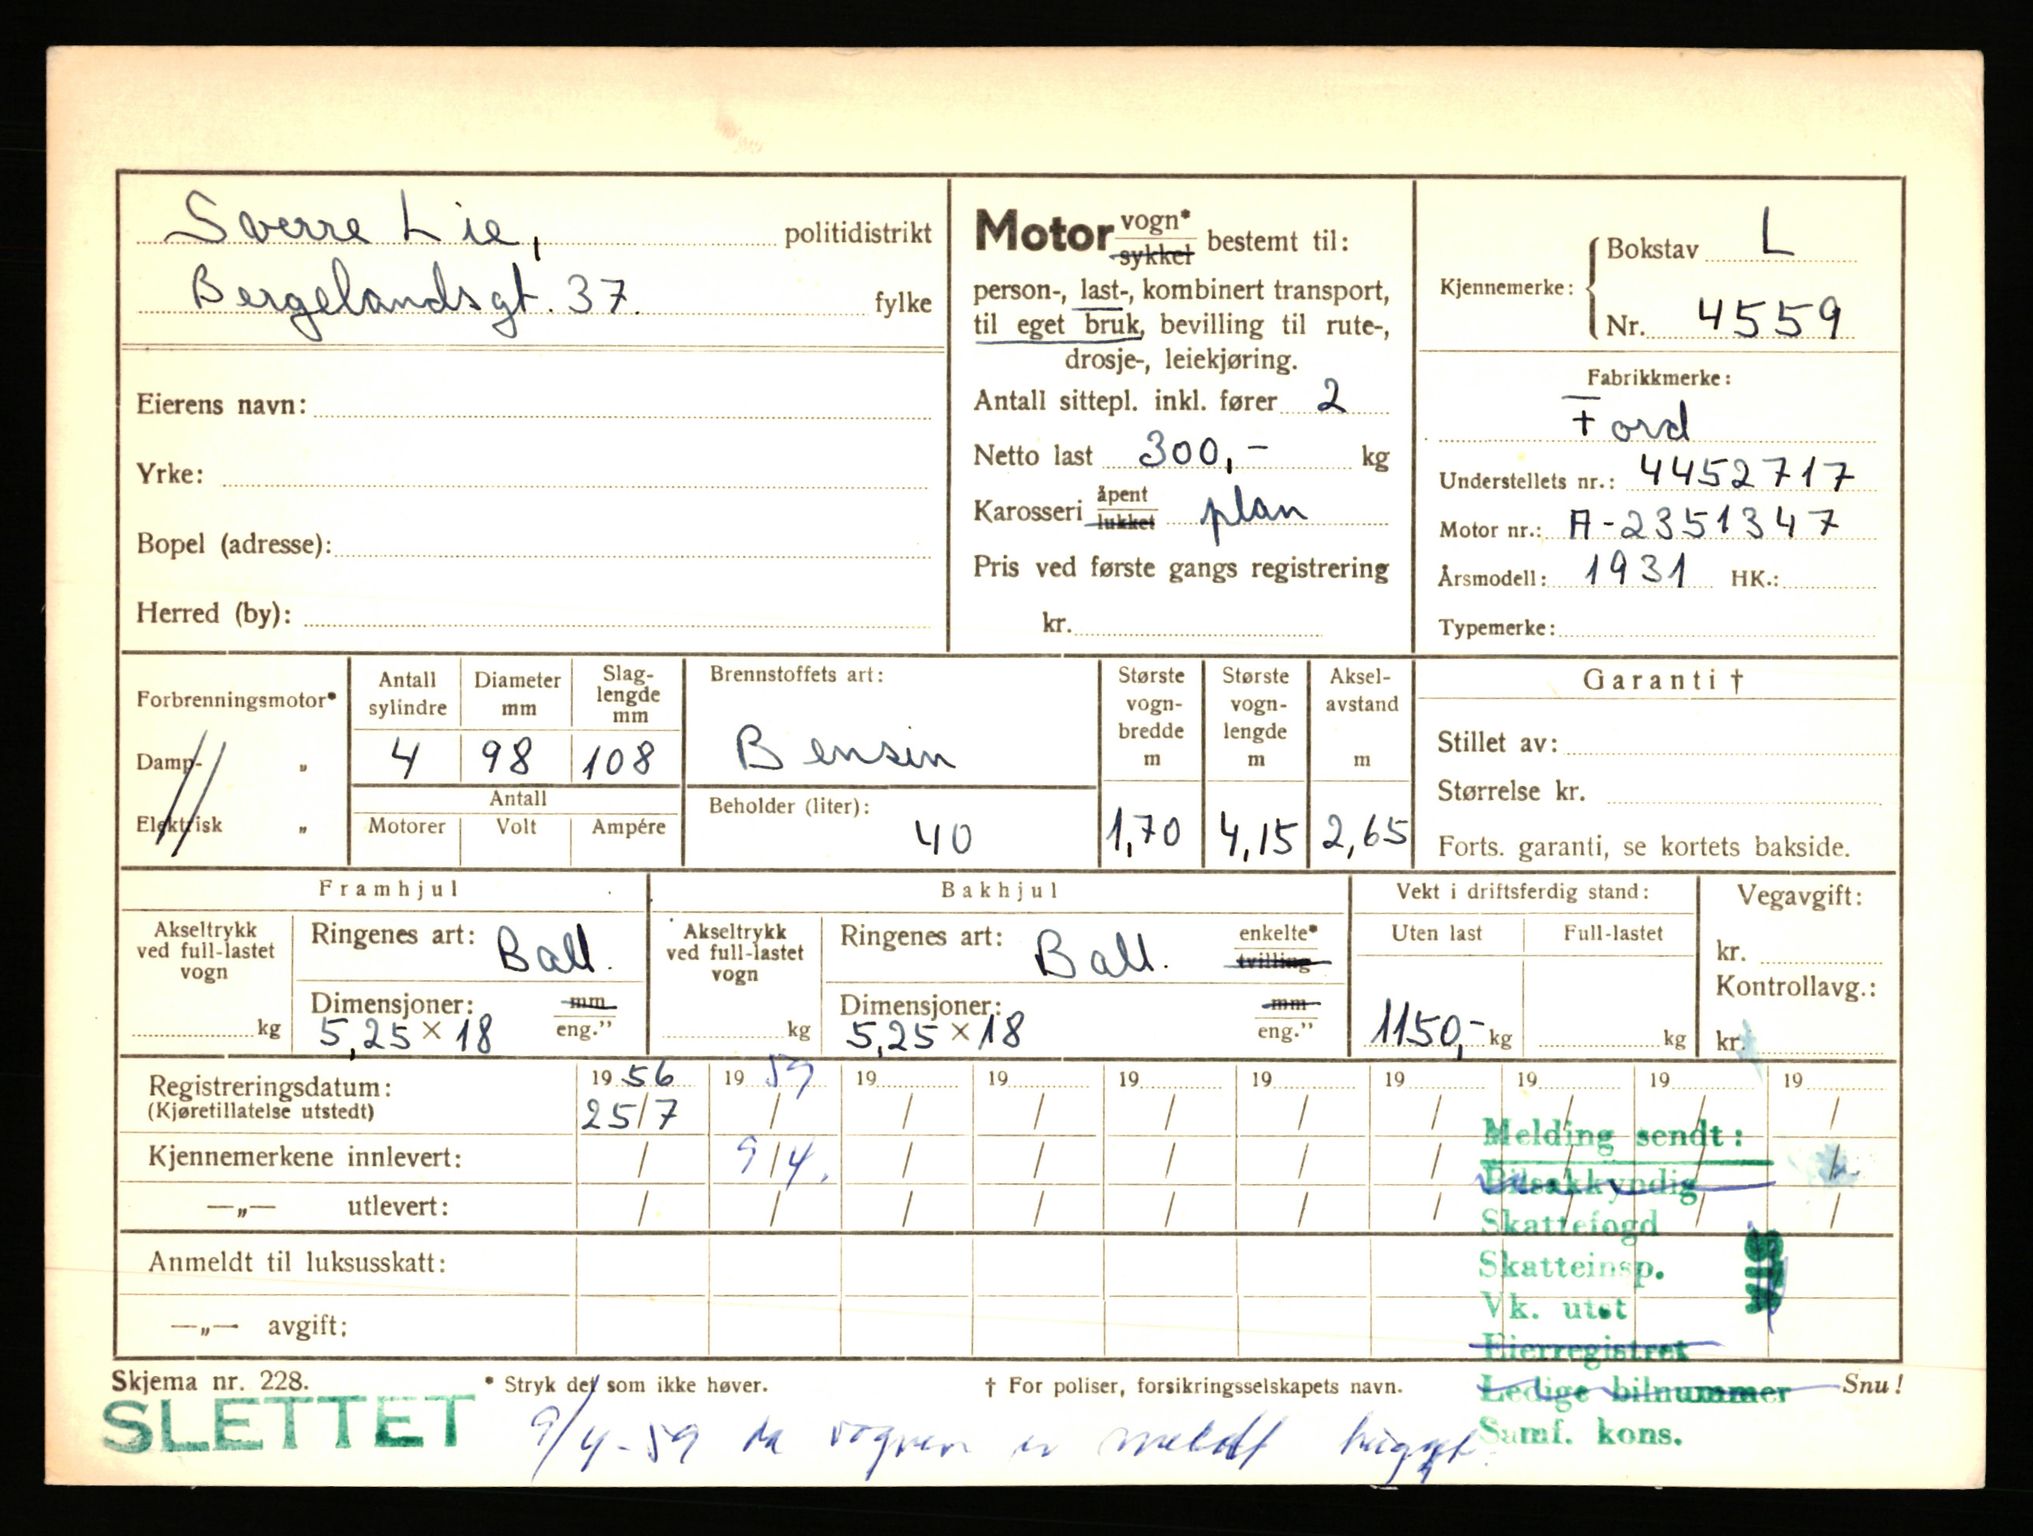 Sverre Lie, politidistrikt
Bergelandsgt. 37. fylke
Eierens navn:
Yrke:
Bopel (adresse):
Herred (by):
Motor vogn* sykkel bestemt til:
person-, last-, kombinert transport,
til eget bruk, bevilling til rute-,
drosje-, leiekjøring.
Antall sittepl. inkl. fører 2
Netto last 300,- kg
Karosseri åpent lukket plan
Pris ved første gangs registrering
kr.
Kjennemerke: Bokstav L
Nr. 4559
Fabrikkmerke:
Ford
Understellets nr.: 4452717
Motor nr.: A-2351347
Årsmodell: 1931 HK.:
Typemerke:
Forbrenningsmotor*
Damp- „
Elektrisk „
Antall sylindre
4
Diameter mm
98
Slag-lengde mm
108
Antall
Motorer Volt Ampére
Brennstoffets art:
Bensin
Beholder (liter):
40
Største vogn-bredde m
1,70
Største vogn-lengde m
4,15
Aksel-avstand m
2,65
Garanti †
Stillet av:
Størrelse kr.
Forts. garanti, se kortets bakside.
Framhjul
Akseltrykk
ved full-lastet
vogn
kg
Ringenes art: Ball.
Dimensjoner: mm
5,25 × 18 eng.”
Bakhjul
Akseltrykk
ved full-lastet
vogn
kg
Ringenes art: Ball. enkelte* tvilling
Dimensjoner: mm
5,25 × 18 eng.”
Vekt i driftsferdig stand:
Uten last Full-lastet
1150,- kg kg
Vegavgift:
kr.
Kontrollavg.:
kr.
Registreringsdatum: 19 56 19 59 19 19 19 19 19 19 19 19
(Kjøretillatelse utstedt) 25/7 / / / / / / / / /
Kjennemerkene innlevert: / 9/4. / / / / / /
—„— utlevert: / / / / / / / / / /
Anmeldt til luksusskatt:
—„— avgift:
Melding sendt:
Bilsakkyndig
Skattefogd
Skatteinsp.
Vk. utst
Eierregistret
Ledige bilnummer
Samf. kons.
Skjema nr. 228.
* Stryk det som ikke høver.
† For poliser, forsikringsselskapets navn.
Snu!
SLETTET 9/4-59 da vognen er meldt hugget.